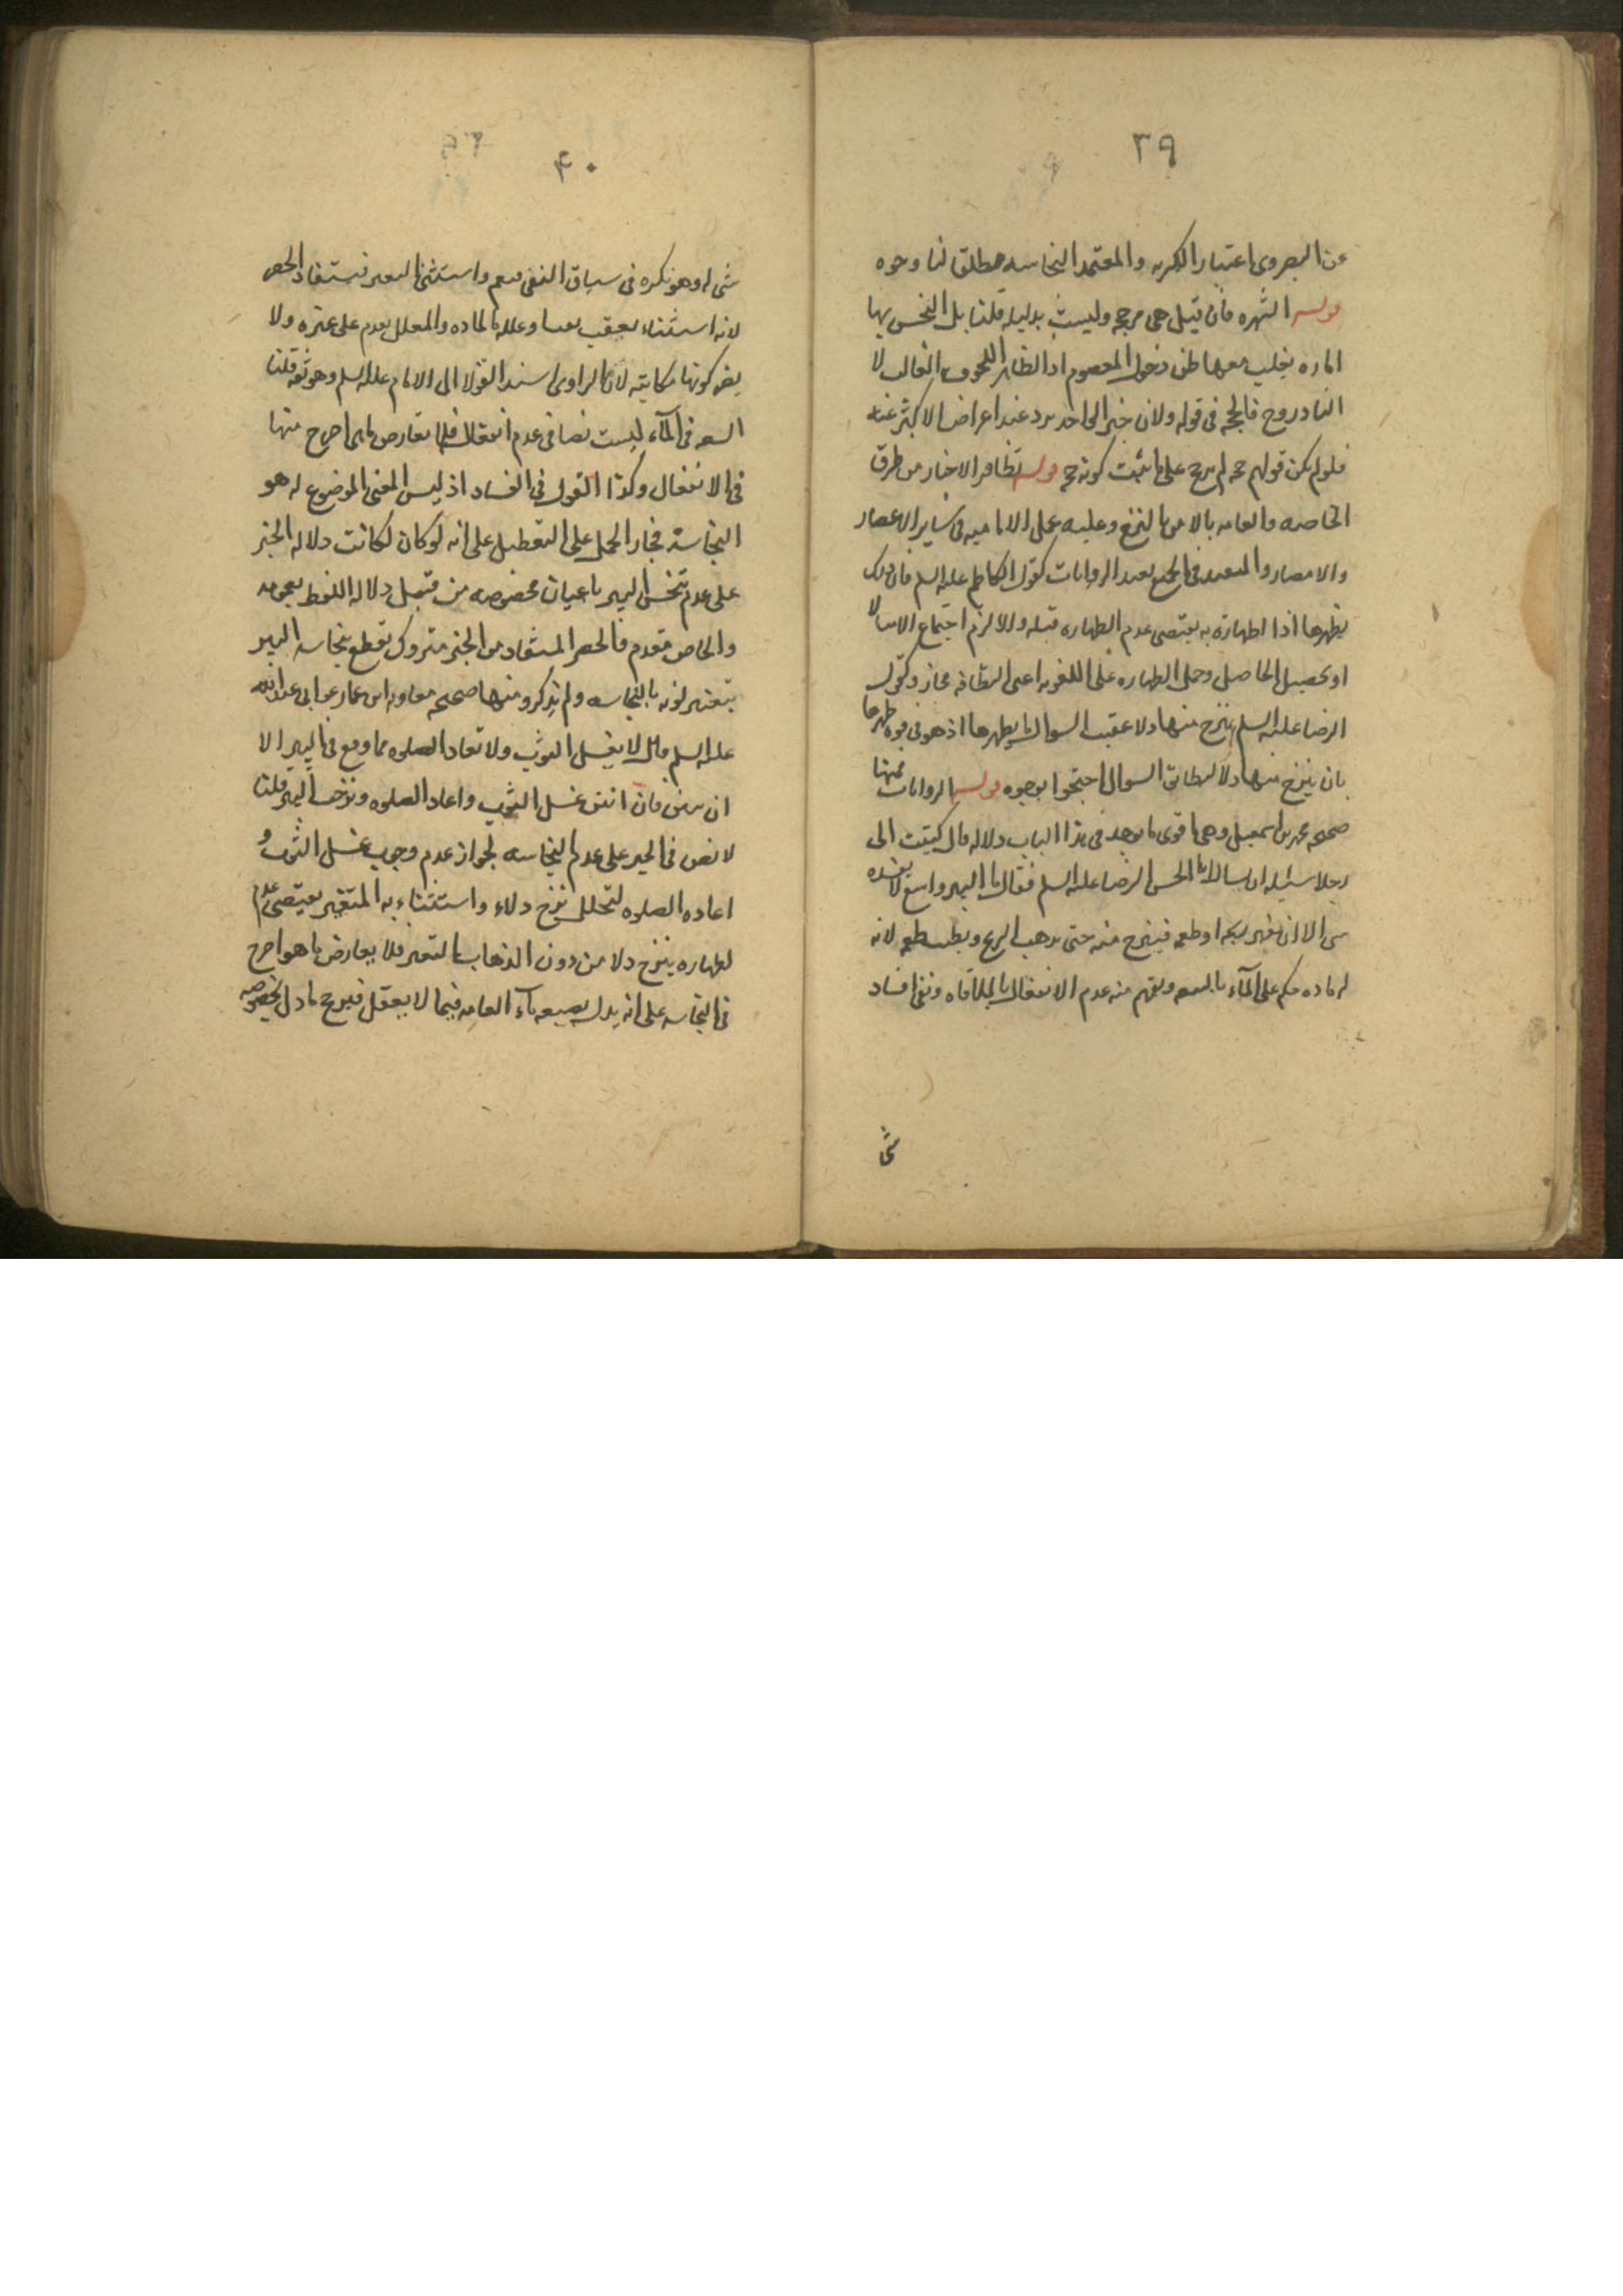 ٣٩
عن البصروى اعتبار الكريه والمعتمد النجاسه مطلقا لنا وجوه
الشهره فان قيل هى مرجحه وليست بدليل قلنا بل التنجس بها
اماره يغلب معها ظن دخول المعصوم اذ الظاهر اللحوق الغالب لا
النادر وح فالحجه فى قوله ولان خبر الواحد يرد عند اعراض الاكثر عنه
فلو لم يكن قولهم حجه لم يرجح على ما ثبت كونه حجه تظافر الاخبار من طرق
الخاصه والعامه بالامر بالنزح وعليه عمل الاماميه فى ساير الاعصار
والامصار فى الجميع الروايات كقول الكاظم عليه السلم فان ذلك
يطهرها اذ الطهاره به يقتضى عدم الطهاره قبله والا لزم اجتماع الامثال
او تحصيل الحاصل وحمل الطهاره على اللغويه اعنى النظافه مجاز وكقول
الرضا عليه السلم ينزح منها دلاء عقيب السوال بما يطهرها اذ هو فى قوه طهرها
بان ينزح منها دلاء لتطابق السوال احتجوا بوجوه الروايات فمنها
صحيحه محمد بن اسمعيل وهى اقوى ما يوجد فى هذا الباب دلاله قال كتبت الى
رجل اسئله ان يسال ابا الحسن الرضا عليه السلم فقال ماء البير واسع لا يفسده
شى الا ان يتغير ريحه او طعمه فينزح منه حتى يذهب الريح ويطيب طعمه لانه
له ماده حكم على الماء بالسعه ويفهم منه عدم الانفعال بالملاقاه ونفى افساد
شى
۴٠
شى له وهو نكره فى سياق النفى فيعم واستثنى التغير فيستفاد الحصر
لانه استثناء يعقب نفيا وعلله بالماده والمعلل يقدم على غيره ولا
يضر كونها مكاتبه لان الراوى اسند القول الى الامام عليه السلم وهو ثقه قلنا
السعه فى الماء ليست نصا فى عدم انفعاله فلا تعارض ما هى اصرح منها
فى الانفعال وكذا القول فى الفساد اذ ليس المعنى الموضوع له هو
النجاسه فجاز الحمل على التعطيل على انه لو كان لكانت دلاله الخبر
على عدم تنجس البير باعيان مخصوصه من قبيل دلاله اللفظ بعمومه
والخاص مقدم فالحصر المستفاد من الخبر متروك بقطع نجاسه البير
بتغير لونه بالنجاسه ولم يذكر ومنها صحيحه معاويه ابن عمار عن ابى عبد الله
عليه السلم قال لا يغسل الثوب ولا تعاد الصلوه مما وقع فى البير الا
ان ينتن فان انتن غسل الثوب واعاد الصلوه ونزحت البير قلنا
لا نص فى الخبر على عدم النجاسه لجواز عدم وجوب غسل الثوب و
اعاده الصلوه لتخلل نزح دلاء واستثناء به المتغير يقتضى عدم
لطهاره بنزح دلاء من دون الذهاب بالتغير فلا يعارض ما هو اصرح
فى النجاسه على انه يدل بصيغه ماء العامه فيما لا يعقل فيرجح ما دل بخصوصه